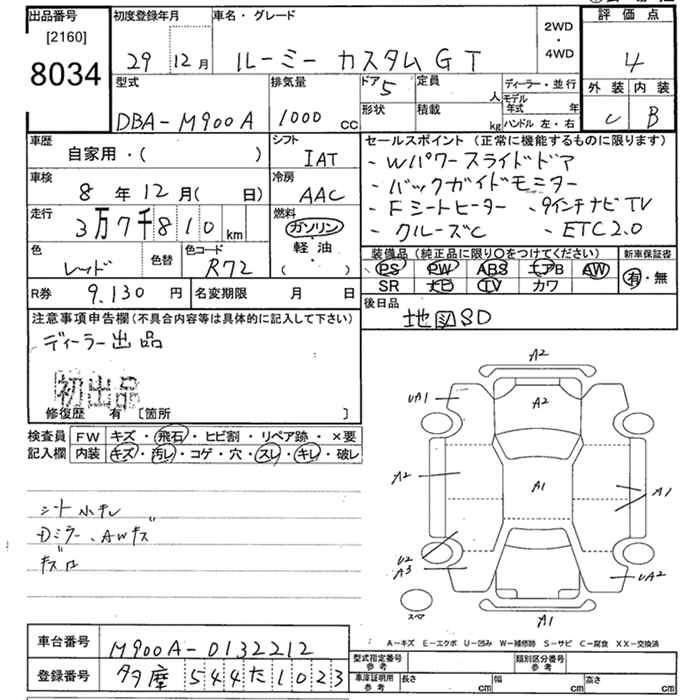 出品番号
[2160]
8034
初度登録年月
29 12月
車名・グレード
ルーミー カスタムGT
2WD
・
4WD
評価点
4
外装 内装
C B
型式
DBA-M900A
排気量
1000 cc
ドア 5
形状
定員 人
積載 kg
ディーラー・並行
モデル年式 年
ハンドル 左・右
車歴
自家用・( )
シフト
IAT
車検
8年12月( 日)
冷房
AAC
走行
3万7千810 km
燃料
ガソリン
・
軽油
( )
色
レッド
色替
色コード
R72
R券 9.130 円
名変期限 月 日
セールスポイント(正常に機能するものに限ります)
-Wパワースライドドア
-バックガイドモニター
-Fシートヒーター -9インチナビTV
-クルーズC -ETC2.0
装備品(純正品に限り○をつけてください)
PS PW ABS エアB AW
SR ナビ TV カワ
新車保証書
有・無
後日品
地図SD
注意事項申告欄(不具合内容等は具体的に記入して下さい)
ディーラー出品
初出品
修復歴 有 〔箇所 〕
検査員記入欄
FW キズ・飛石・ヒビ割・リペア跡・×要
内装 キズ・汚レ・コゲ・穴・スレ・キレ・破レ
シート小キレ
Dミラー、AWキズ
キズロ
A2
UA1
A2
A2
A1
A1
U2
A3
UA2
スペア
A1
A-キズ E-エクボ U-凹み W-補修跡 S-サビ C-腐食 XX-交換済
車台番号 M900A-0132212
登録番号 多摩 544 た 1023
型式指定番号 参考
類別区分番号 参考
車庫証明用 参考
長さ cm
幅 cm
高さ cm